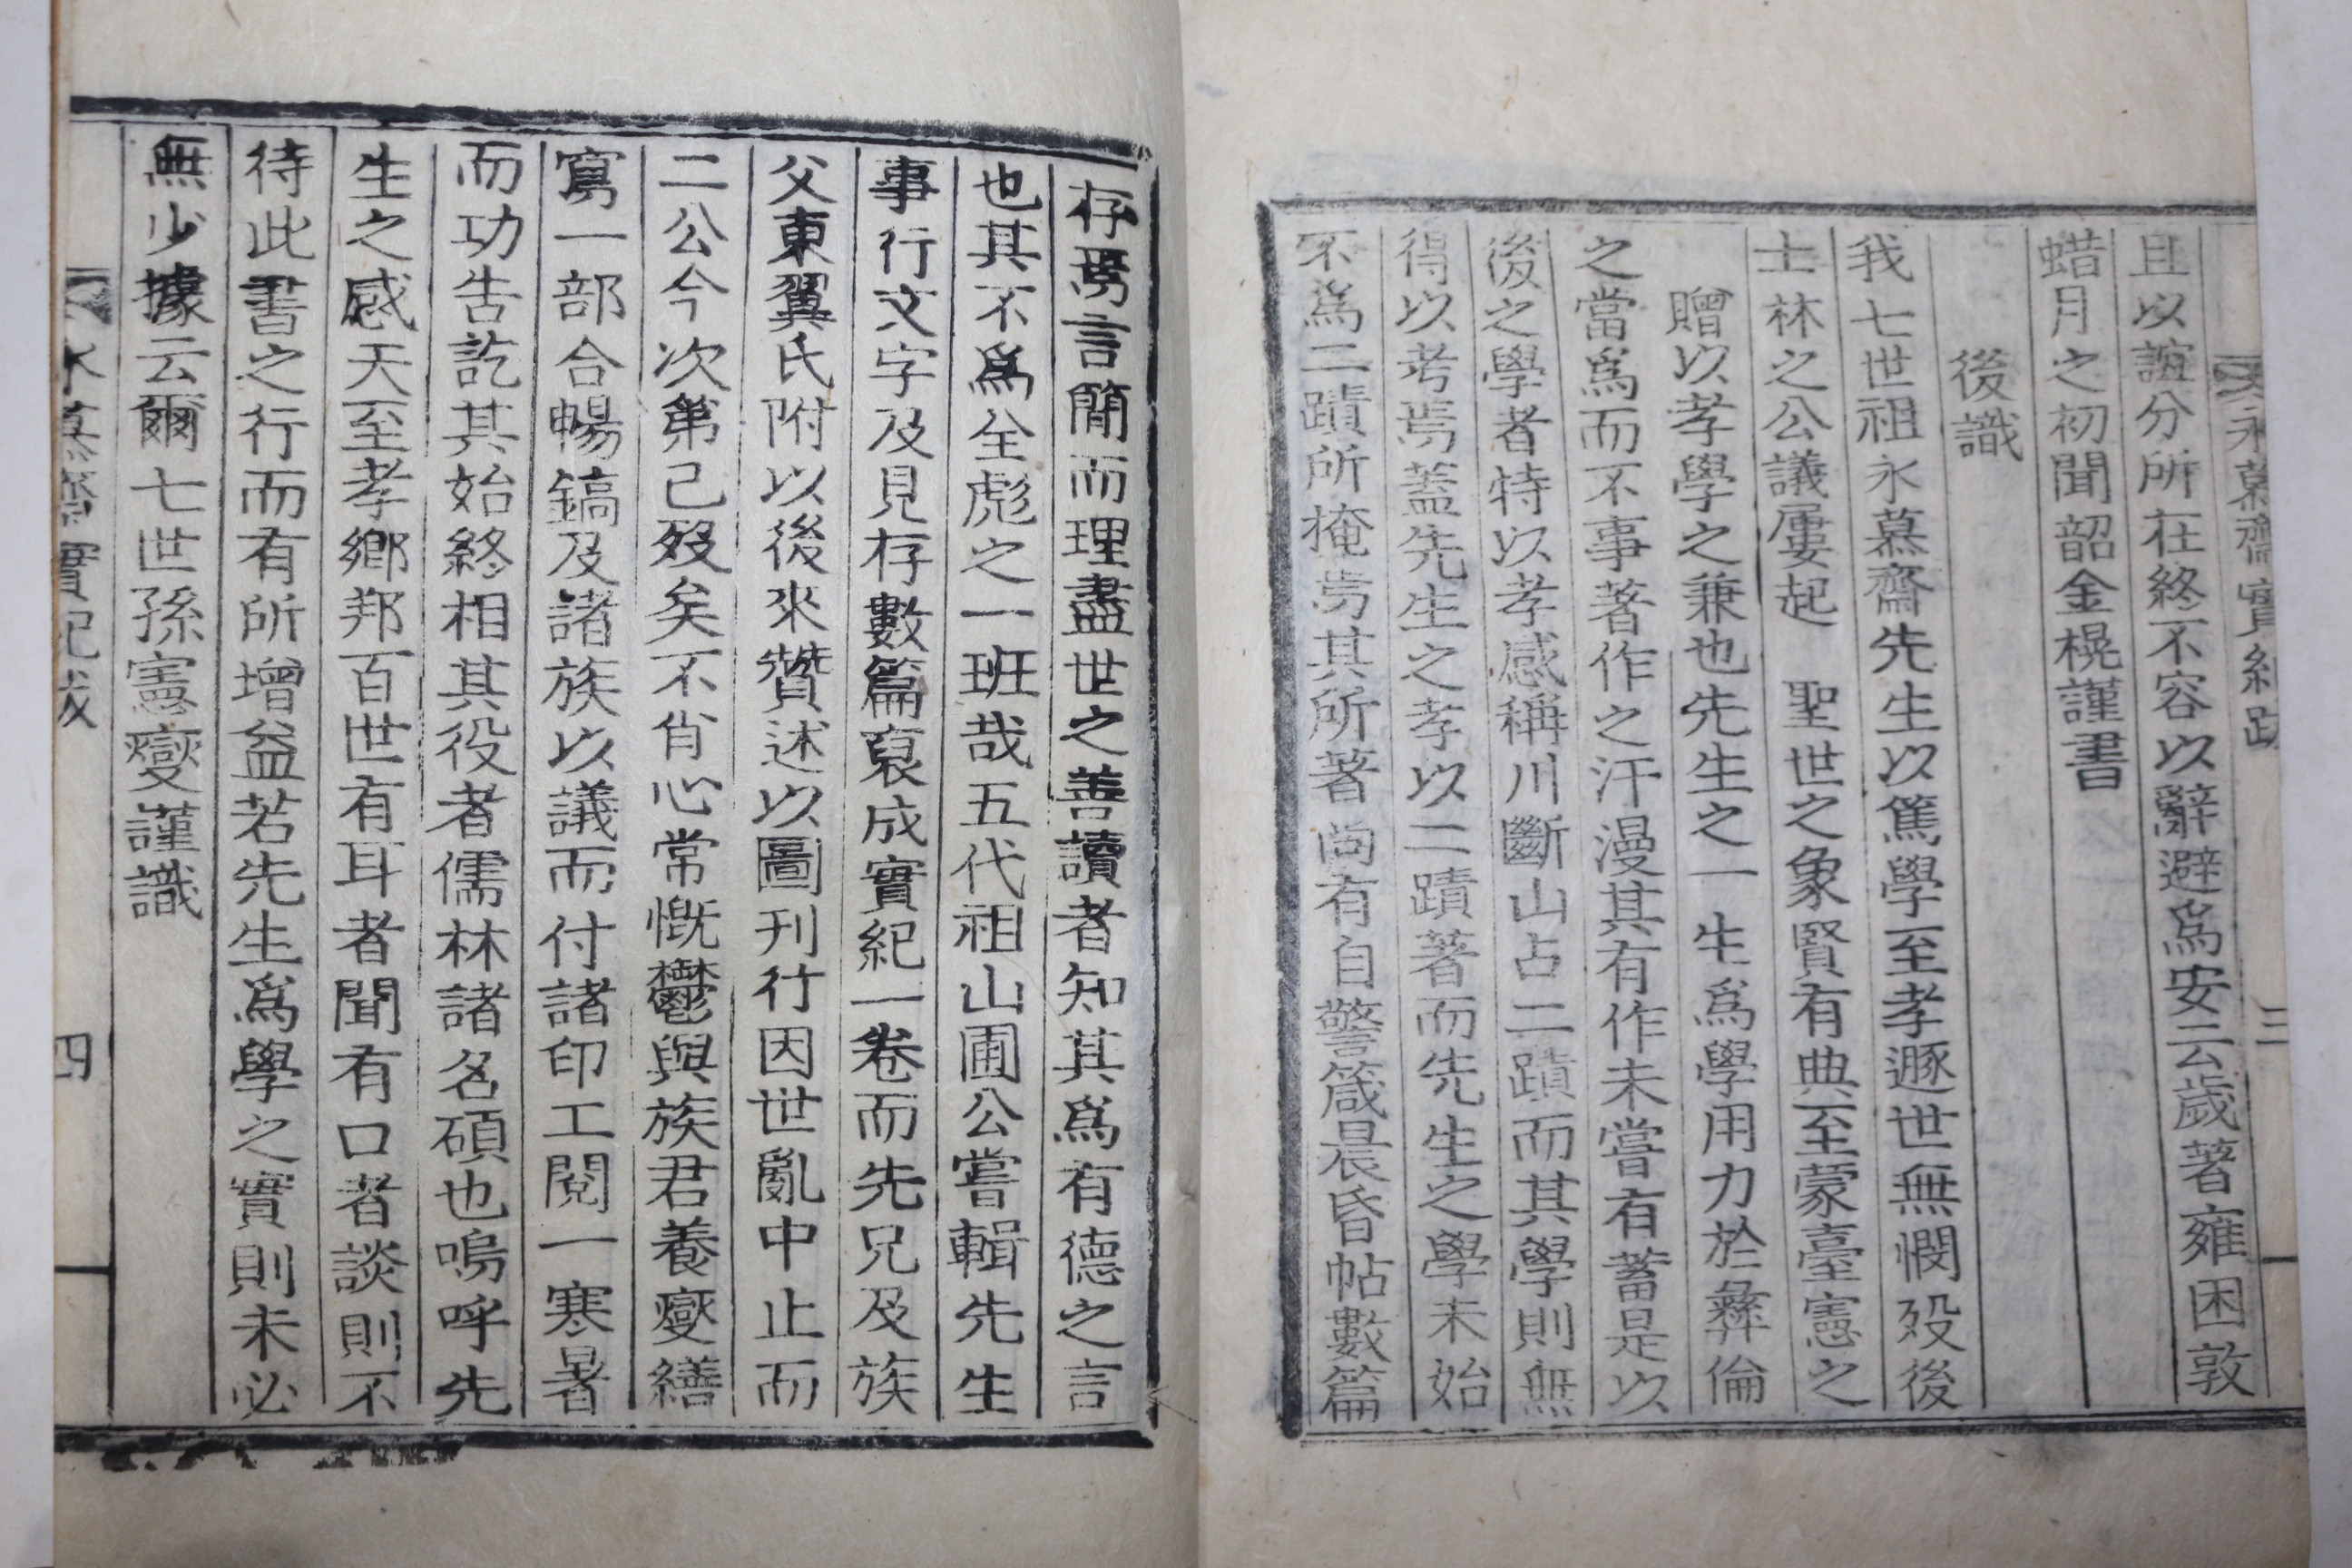 永慕齋實紀跋
三
且以誼分所在終不容以辭避爲安云歲著雍困敦
蜡月之初聞韶金榥謹書
後識
我七世祖永慕齋先生以篤學至孝遯世無憫歿後
士林之公議屢起 聖世之象賢有典至蒙臺憲之
贈以孝學之兼也先生之一生爲學用力於彛倫
之當爲而不事著作之汗漫其有作未嘗有蓄是以
後之學者特以孝感稱川斷山占二蹟而其學則無
得以考焉蓋先生之孝以二蹟著而先生之學未始
不爲二蹟所掩焉其所著尙有自警箴晨昏帖數篇
存焉言簡而理盡世之善讀者知其爲有德之言
也其不爲全彪之一班哉五代祖山圃公嘗輯先生
事行文字及見存數篇裒成實紀一卷而先兄及族
父東翼氏附以後來贊述以圖刊行因世亂中止而
二公今次第已歿矣不肖心常慨鬱與族君養燮繕
寫一部合暢鎬及諸族以議而付諸印工閱一寒暑
而功告訖其始終相其役者儒林諸名碩也嗚呼先
生之感天至孝鄉邦百世有耳者聞有口者談則不
待此書之行而有所增益若先生爲學之實則未必
無少據云爾七世孫憲燮謹識
永慕齋實紀跋
四